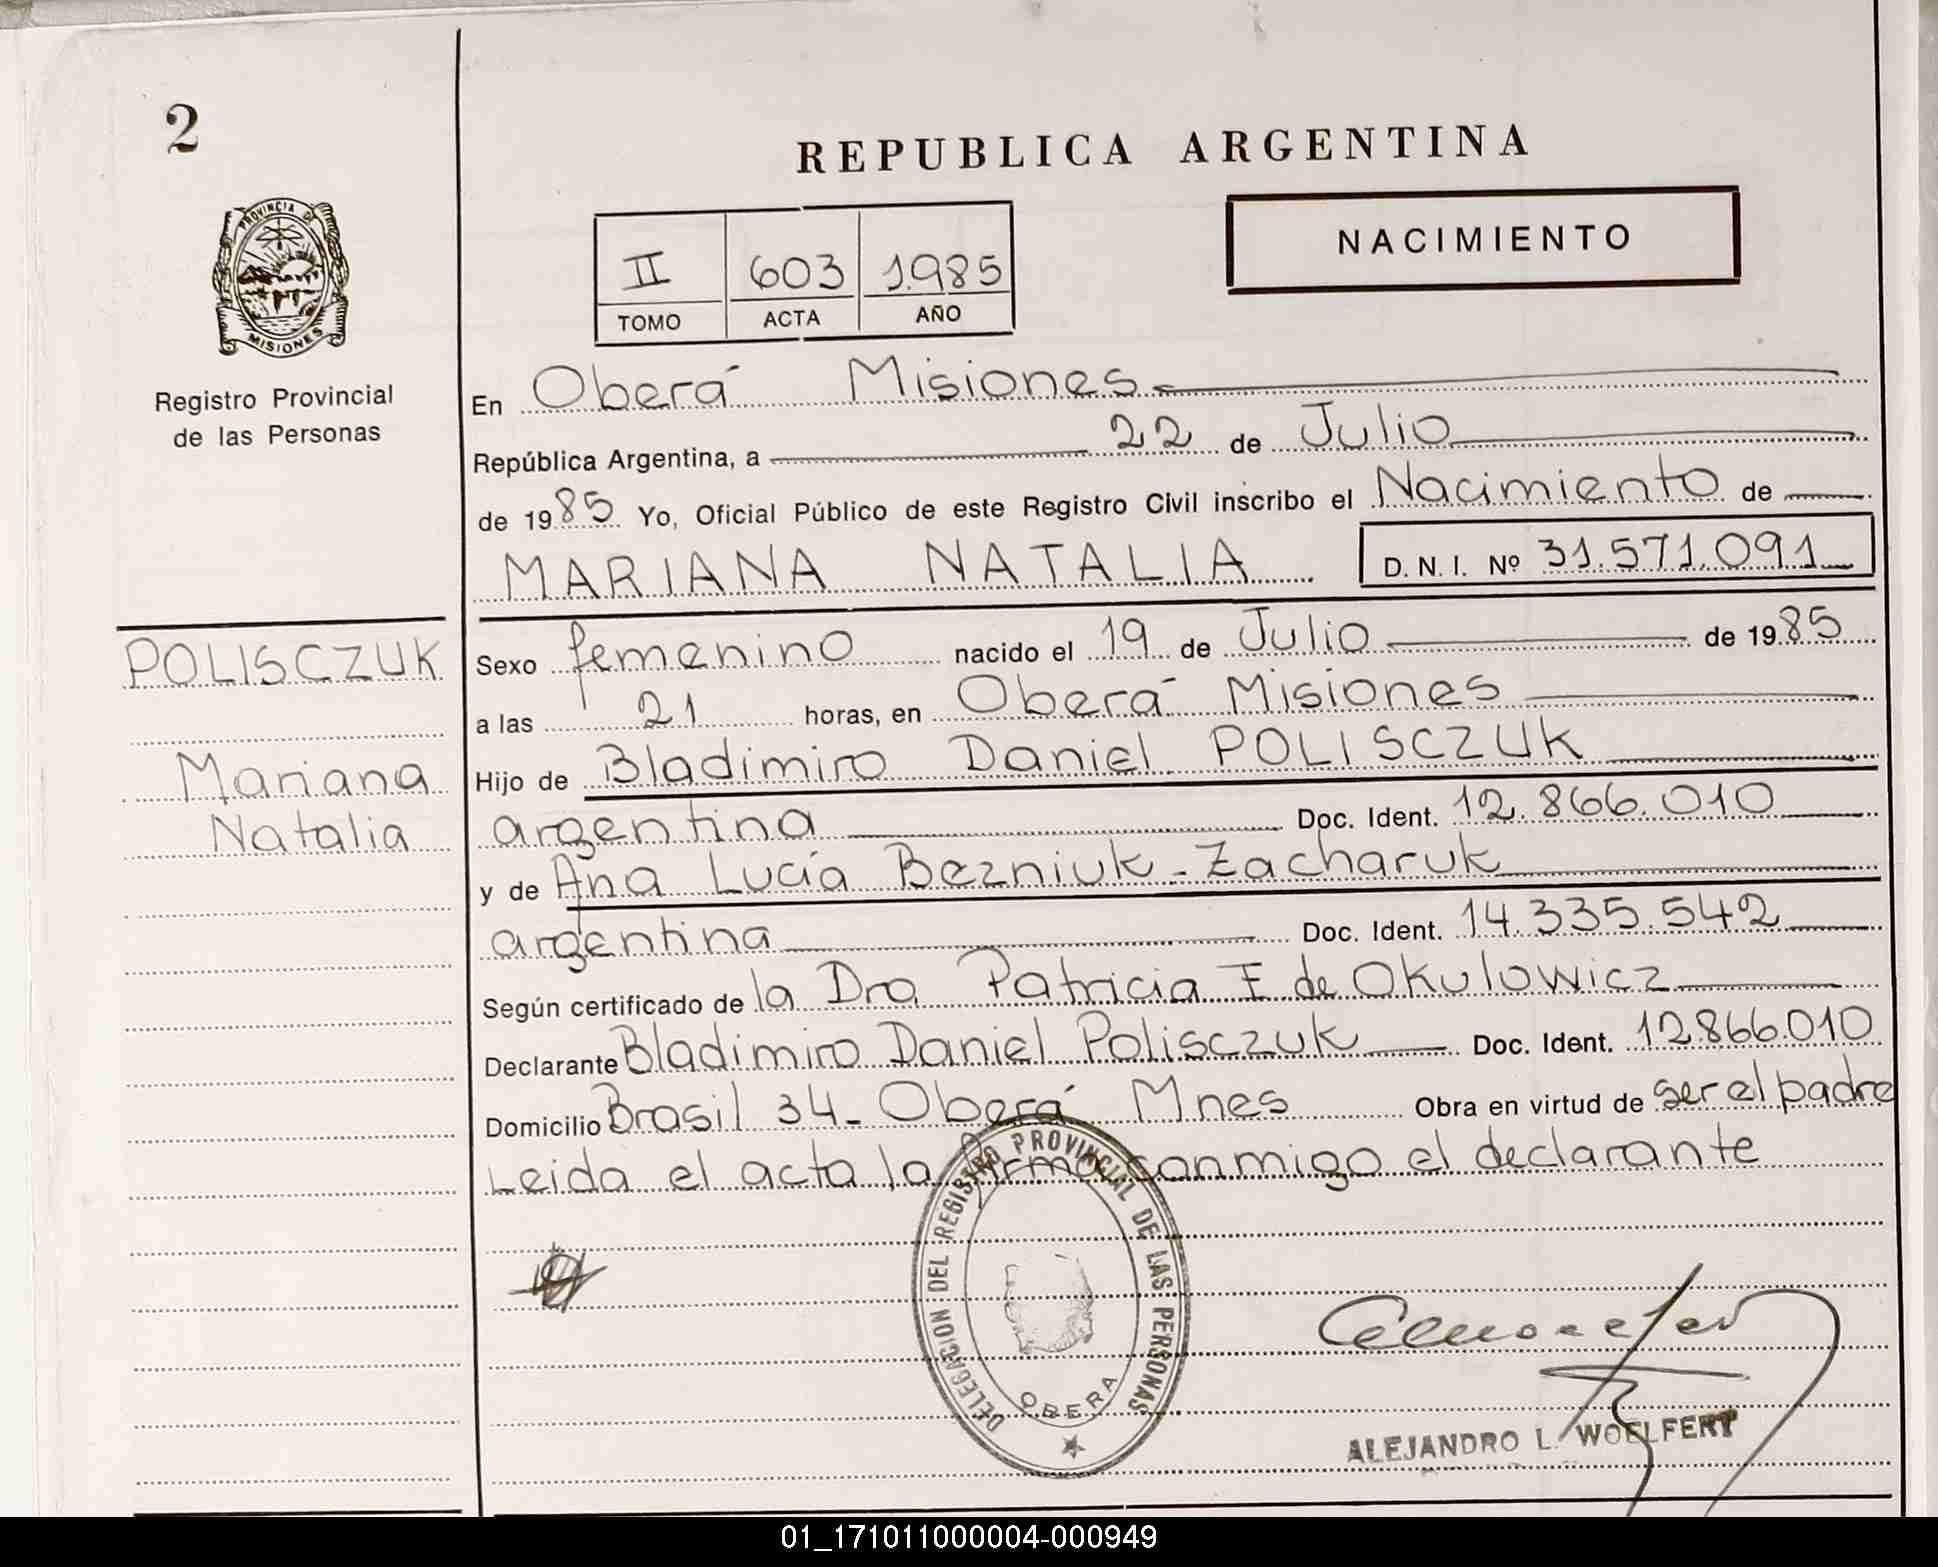 2
REPUBLICA ARGENTINA
PROVINCIA DE
MISIONES
Registro Provincial
de las Personas
II 603 1.985
TOMO ACTA AÑO
NACIMIENTO
En Oberá Misiones
República Argentina, a 22 de Julio
de 1985 Yo, Oficial Público de este Registro Civil inscribo el Nacimiento de
MARIANA NATALIA D. N. I. Nº 31.571.091
POLISCZUK
Mariana
Natalia
Sexo femenino nacido el 19 de Julio de 1985
a las 21 horas, en Oberá Misiones
Hijo de Bladimiro Daniel POLISCZUK
argentina Doc. Ident. 12.866.010
y de Ana Lucía Bezniuk - Zacharuk
argentina Doc. Ident. 14.335.542
Según certificado de la Dra Patricia F de Okulowicz
Declarante Bladimiro Daniel Polisczuk Doc. Ident. 12.866.010
Domicilio Brasil 34 - Oberá Mnes Obra en virtud de ser el padre
Leida el acta la firma conmigo el declarante
DELEGACION DEL REGISTRO PROVINCIAL DE LAS PERSONAS
OBERA
ALEJANDRO L. WOELFERT
01_171011000004-000949